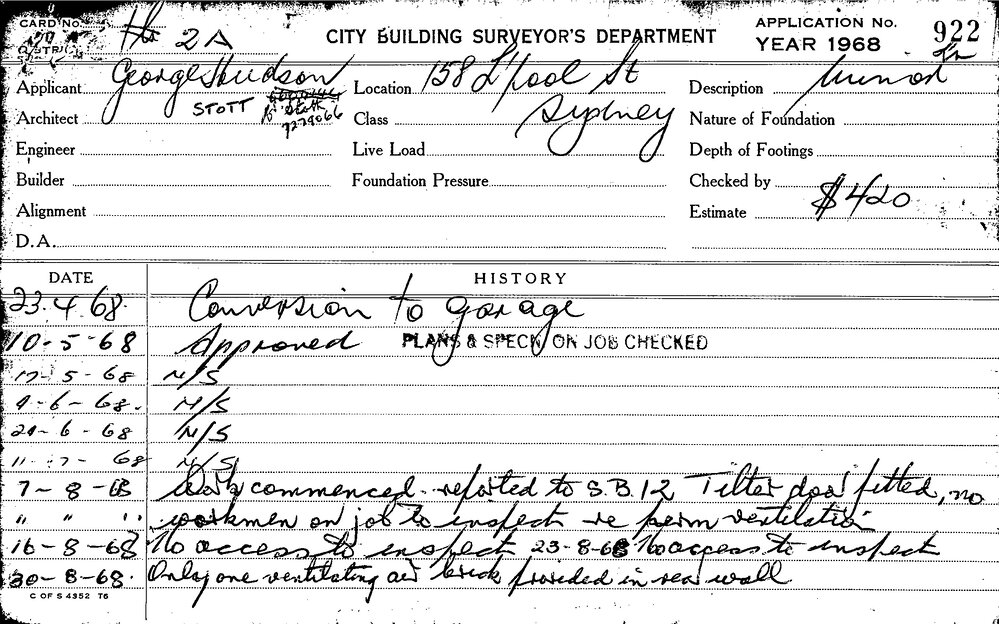 CARD No.
DISTRICT 2A
CITY BUILDING SURVEYOR'S DEPARTMENT
APPLICATION No. 922
YEAR 1968
Applicant George Hudson
STOTT
Location 158 L'pool St
Sydney
Description Minor
Architect
Class
Nature of Foundation
Engineer
Live Load
Depth of Footings
Builder
Foundation Pressure
Checked by
Alignment
Estimate $420
D.A.
DATE HISTORY
23.4.68. Conversion to garage
10-5-68 Approved PLANS & SPECN. ON JOB CHECKED
17-5-68 N/S
4-6-68. N/S
21-6-68 N/S
11-7-68 N/S
7-8-68 Work commenced. reported to S.B.12 Tilter door fitted, no
" " " workmen on job to inspect re perm ventilation
16-8-68 No access to inspect 23-8-68 No access to inspect
30-8-68. Only one ventilating air brick provided in rear wall
C OF S 4352 T6